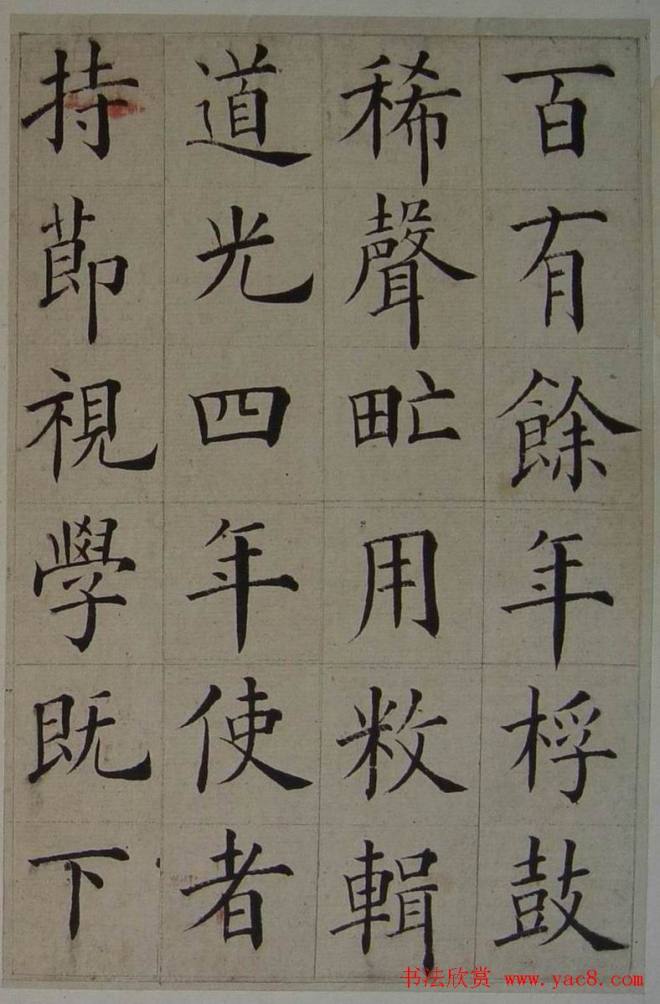 百有餘年桴鼓
稀聲甿用敉輯
道光四年使者
持節視學既下
书法欣赏 www.yac8.com